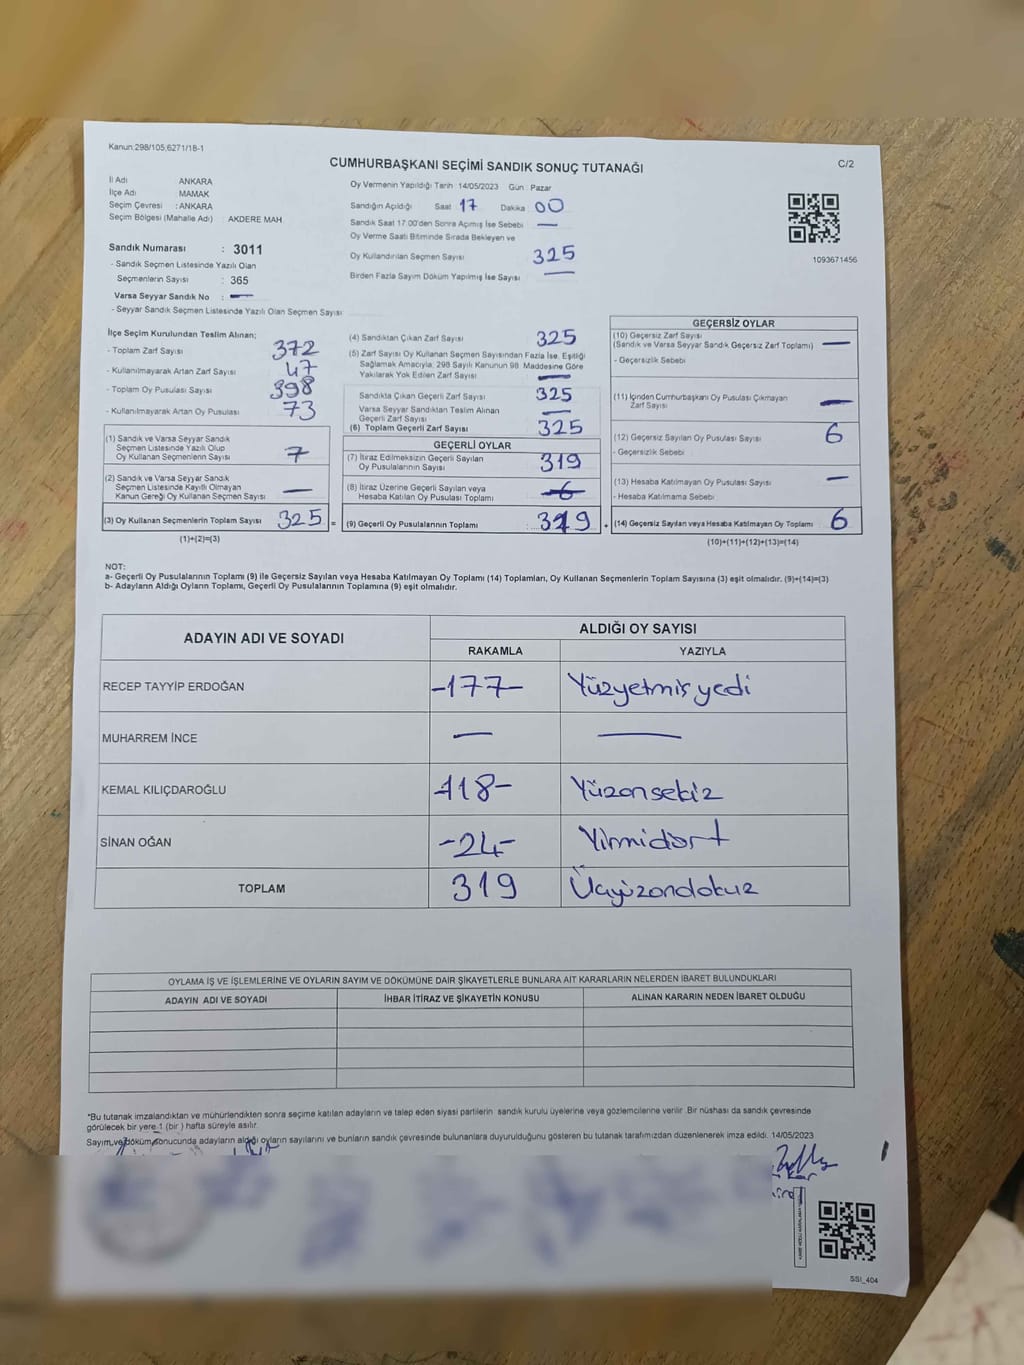 Kanun:298/105;6271/18-1
CUMHURBAŞKANI SEÇİMİ SANDIK SONUÇ TUTANAĞI
C/2
İl Adı ANKARA
İlçe Adı : MAMAK
Seçim Çevresi : ANKARA
Seçim Bölgesi (Mahalle Adı) : AKDERE MAH
Sandık Numarası : 3011
- Sandık Seçmen Listesinde Yazılı Olan
Seçmenlerin Sayısı : 365
Varsa Seyyar Sandık No : —
- Seyyar Sandık Seçmen Listesinde Yazılı Olan Seçmen Sayısı:
Oy Vermenin Yapıldığı Tarih :14/05/2023 Gün : Pazar
Sandığın Açıldığı Saat 17 Dakika 00
Sandık Saat 17:00'den Sonra Açımış İse Sebebi —
Oy Verme Saati Bitiminde Sırada Bekleyen ve
Oy Kullandırılan Seçmen Sayısı 325
Birden Fazla Sayım Döküm Yapılmış İse Sayısı —
1093671456
İlçe Seçim Kurulundan Teslim Alınan;
- Toplam Zarf Sayısı 372
- Kullanılmayarak Artan Zarf Sayısı 47
- Toplam Oy Pusulası Sayısı 398
- Kullanılmayarak Artan Oy Pusulası 73
(1) Sandık ve Varsa Seyyar Sandık
Seçmen Listesinde Yazılı Olup
Oy Kullanan Seçmenlerin Sayısı 7
(2) Sandık ve Varsa Seyyar Sandık
Seçmen Listesinde Kayıtlı Olmayan
Kanun Gereği Oy Kullanan Seçmen Sayısı —
(3) Oy Kullanan Seçmenlerin Toplam Sayısı 325 =
(1)+(2)=(3)
(4) Sandıktan Çıkan Zarf Sayısı 325
(5) Zarf Sayısı Oy Kullanan Seçmen Sayısından Fazla İse, Eşitliği
Sağlamak Amacıyla; 298 Sayılı Kanunun 98. Maddesine Göre
Yakılarak Yok Edilen Zarf Sayısı —
Sandıkta Çıkan Geçerli Zarf Sayısı 325
Varsa Seyyar Sandıktan Teslim Alınan
Geçerli Zarf Sayısı —
(6) Toplam Geçerli Zarf Sayısı 325
GEÇERLİ OYLAR
(7) İtiraz Edilmeksizin Geçerli Sayılan
Oy Pusulalarının Sayısı 319
(8) İtiraz Üzerine Geçerli Sayılan veya
Hesaba Katılan Oy Pusulası Toplamı 6
(9) Geçerli Oy Pusulalarının Toplamı 319 +
GEÇERSİZ OYLAR
(10) Geçersiz Zarf Sayısı
(Sandık ve Varsa Seyyar Sandık Geçersiz Zarf Toplamı) —
- Geçersizlik Sebebi
(11) İçinden Cumhurbaşkanı Oy Pusulası Çıkmayan
Zarf Sayısı —
(12) Geçersiz Sayılan Oy Pusulası Sayısı 6
- Geçersizlik Sebebi
(13) Hesaba Katılmayan Oy Pusulası Sayısı —
- Hesaba Katılmama Sebebi
(14) Geçersiz Sayılan veya Hesaba Katılmayan Oy Toplamı 6
(10)+(11)+(12)+(13)=(14)
NOT:
a- Geçerli Oy Pusulalarının Toplamı (9) ile Geçersiz Sayılan veya Hesaba Katılmayan Oy Toplamı (14) Toplamları, Oy Kullanan Seçmenlerin Toplam Sayısına (3) eşit olmalıdır. (9)+(14)=(3)
b- Adayların Aldığı Oyların Toplamı, Geçerli Oy Pusulalarının Toplamına (9) eşit olmalıdır.
ADAYIN ADI VE SOYADI ALDIĞI OY SAYISI
RAKAMLA YAZIYLA
RECEP TAYYİP ERDOĞAN -177- Yüzyetmişyedi
MUHARREM İNCE — —
KEMAL KILIÇDAROĞLU -118- Yüzonsekiz
SİNAN OĞAN -24- Yirmidört
TOPLAM 319 Üçyüzondokuz
OYLAMA İŞ VE İŞLEMLERİNE VE OYLARIN SAYIM VE DÖKÜMÜNE DAİR ŞİKAYETLERLE BUNLARA AİT KARARLARIN NELERDEN İBARET BULUNDUKLARI
ADAYIN ADI VE SOYADI İHBAR İTİRAZ VE ŞİKAYETİN KONUSU ALINAN KARARIN NEDEN İBARET OLDUĞU
*Bu tutanak imzalandıktan ve mühürlendikten sonra seçime katılan adayların ve talep eden siyasi partilerin sandık kurulu üyelerine veya gözlemcilerine verilir. Bir nüshası da sandık çevresinde
görülecek bir yere 1 (bir ) hafta süreyle asılır.
Sayım ve döküm sonucunda adayların aldığı oyların sayılarını ve bunların sandık çevresinde bulunanlara duyurulduğunu gösteren bu tutanak tarafımızdan düzenlenerek imza edildi. 14/05/2023
SSI_404